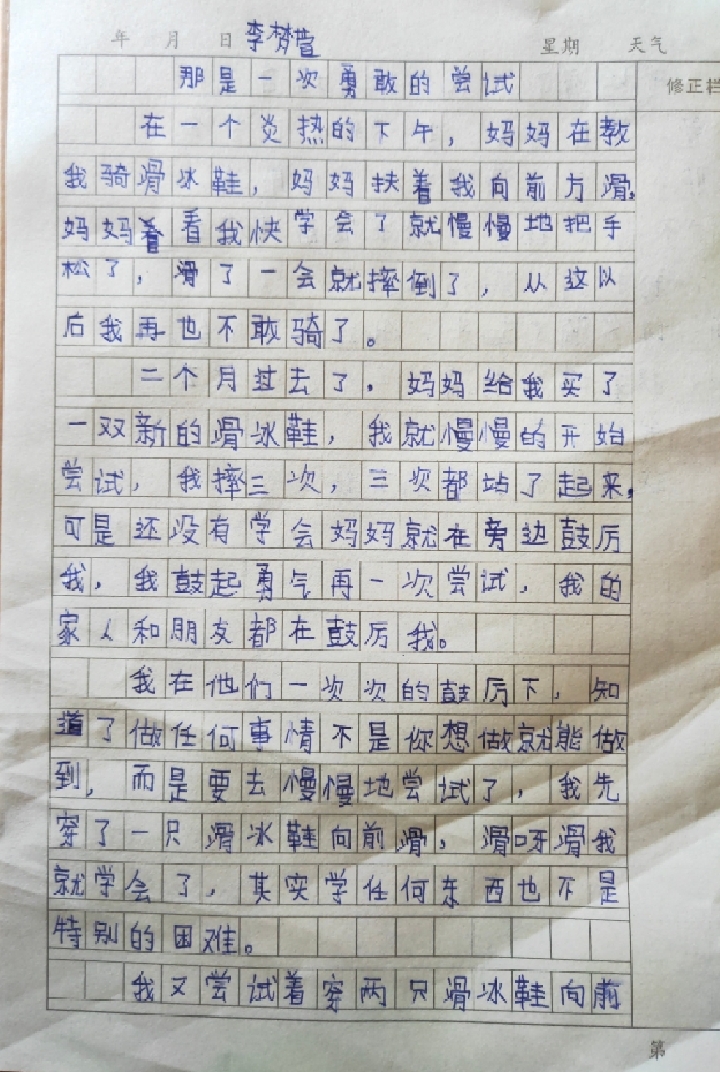 年 月 日 李梦萱 星期 天气
那是一次勇敢的尝试
修正栏
在一个炎热的下午，妈妈在教
我骑滑冰鞋，妈妈扶着我向前方滑。
妈妈着看我快学会了就慢慢地把手
松了，滑了一会就摔倒了，从这以
后我再也不敢骑了。
二个月过去了。妈妈给我买了
一双新的滑冰鞋，我就慢慢的开始
尝试，我摔三次，三次都站了起来，
可是还没有学会妈妈就在旁边鼓厉
我，我鼓起勇气再一次尝试，我的
家人和朋友都在鼓厉我。
我在他们一次次的鼓厉下，知
道了做任何事情不是你想做就能做
到，而是要去慢慢地尝试了，我先
穿了一只滑冰鞋向前滑，滑呀滑我
就学会了，其实学任何东西也不是
特别的困难。
我又尝试着穿两只滑冰鞋向前
第